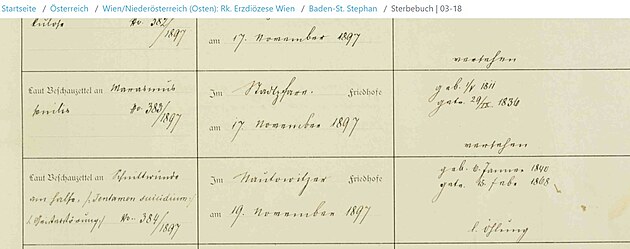 Startseite / Österreich / Wien/Niederösterreich (Osten): Rk. Erzdiözese Wien / Baden-St. Stephan / Sterbebuch | 03-18
No. 382/1897
am 17. November 1897
versehen
Laut Beschauzettel an Marasmus
senilis No. 383/1897
Im Stadtpfarr. Friedhofe
am 17. November 1897
geb. 1/V 1811
getr. 29/IX 1836
versehen
Laut Beschauzettel an Schnittwunde
am Halse, (Tentamen suicidium)
(Geistesstörung) No. 384/1897
Im Friedhofe
am 19. November 1897
geb. 6. Jänner 1840
getr. 18. Febr. 1868
l. Ölung